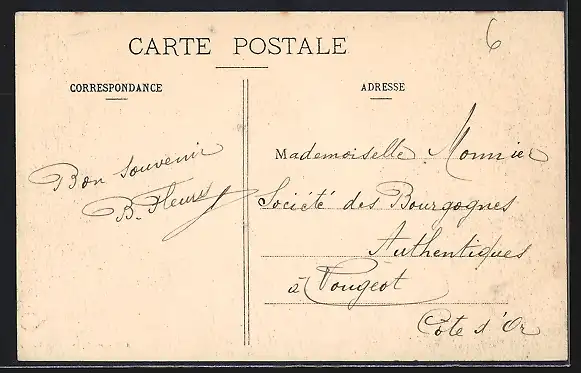 CARTE POSTALE
6
CORRESPONDANCE
ADRESSE
Bon Souvenir
B. Fleury
Mademoiselle Monnier
Société des Bourgognes
Authentiques
à Vougeot
Côte d'Or